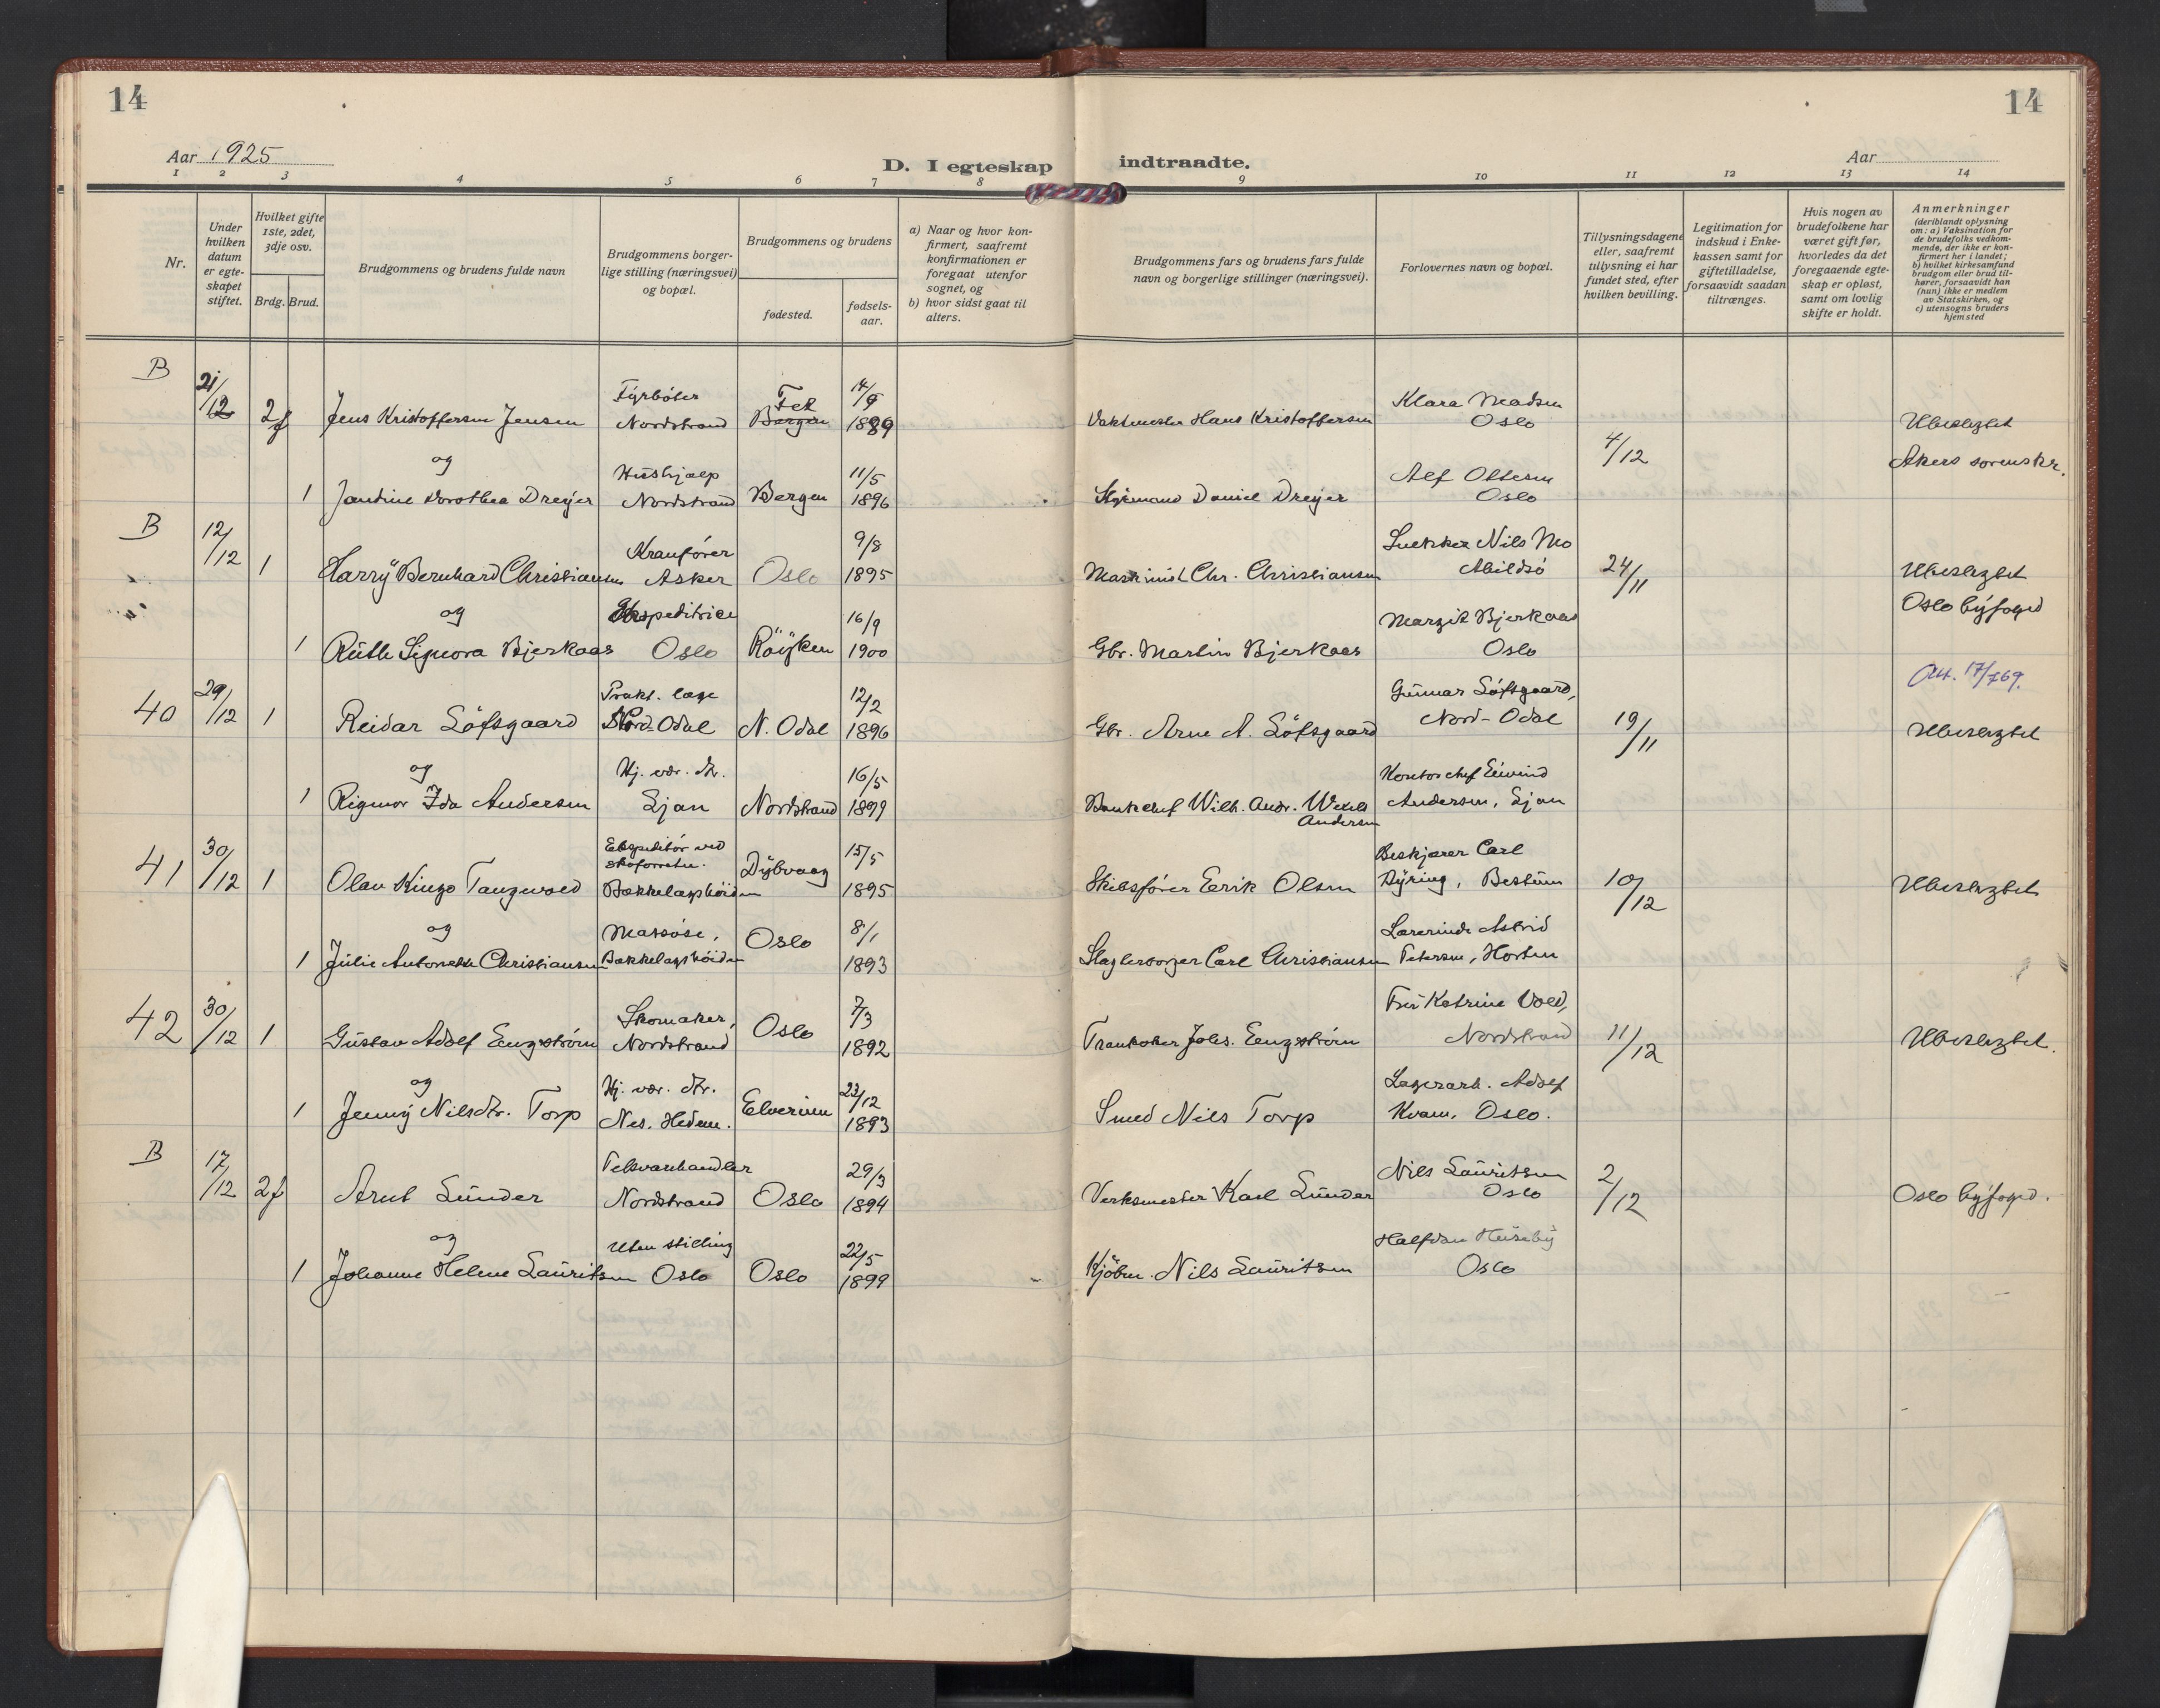 14
14
Aar 1925
D. I egteskap indtraadte.
Aar
1 2 3 4 5 6 7 8 9 10 11 12 13 14
Nr.
Under hvilken datum er egteskapet stiftet.
Hvilket gifte 1ste, 2det, 3dje osv.
Brdg. Brud.
Brudgommens og brudens fulde navn
Brudgommens borgerlige stilling (næringsvei) og bopæl.
Brudgommens og brudens
fødested.
fødselsaar.
a) Naar og hvor konfirmert, saafremt konfirmationen er foregaat utenfor sognet, og
b) hvor sidst gaat til alters.
Brudgommens fars og brudens fars fulde navn og borgerlige stillinger (næringsvei).
Forlovernes navn og bopæl.
Tillysningsdagene eller, saafremt tillysning ei har fundet sted, efter hvilken bevilling.
Legitimation for indskud i Enkekassen samt for giftetilladelse, forsaavidt saadan tiltrænges.
Hvis nogen av brudefolkene har været gift før, hvorledes da det foregaaende egteskap er opløst, samt om lovlig skifte er holdt.
Anmerkninger
(deriblandt oplysning om: a) Vaksination for de brudefolks vedkommende, der ikke er konfirmert her i landet; b) hvilket kirkesamfund brudgom eller brud tilhører, forsaavidt han (hun) ikke er medlem av Statskirken, og c) utensogns bruders hjemsted
B 21/12 2f Jens Kristoffersen Jensen Fyrbøter Nordstrand Fet Bergen 14/9 1889 Vaktmester Hans Kristoffersen Klara Madsen Oslo 4/12 Ubeslegtet
og Akers sorenskr.
1 Jandine Dorothea Dreyer Hushjælp Nordstrand Bergen 11/5 1896 Styrmand Daniel Dreyer Alf Oltesen Oslo
B 12/12 1 Harry Bernhard Christiansen Kranfører Asker Oslo 9/8 1895 Maskinist Chr. Christiansen Snekker Nils Mo Abildsø 24/11 Ubeslegtet
og Oslo byfoged
1 Ruth Signora Bjerkaas Ekspeditrice Oslo Røyken 16/9 1900 Gbr. Martin Bjerkaas Margit Bjerkaas Oslo
Att. 17/769.
40 29/12 1 Reidar Löfsgaard Prakt. læge Nord-Odal N. Odal 12/2 1896 Gbr. Arne A. Löfsgaard Gunnar Löfsgaard, Nord-Odal 19/11 Ubeslegtet
og
1 Rigmor Ida Andersen Hj. vær. dtr. Ljan Nordstrand 16/5 1899 Bankchef Wilh. Andr. Wexels Andersen Kontorchef Eivind Andersen, Ljan
41 30/12 1 Olav Kingo Tangwald Ekspeditør ved skoforretn. Bækkelagshøiden Dybvaag 15/5 1895 Skibsfører Eerik Olsen Beskjærer Carl Dyring, Bestum 10/12 Ubeslegtet
og
1 Julie Antonette Christiansen Massøse, Bækkelagshøiden Oslo 8/1 1893 Slagtersvger Carl Christiansen Lærerinde Astrid Petersen, Horten
42 30/12 1 Gustav Adolf Eengstrøm Skomaker, Nordstrand Oslo 7/3 1892 Trankoker Johs. Eengstrøm Fru Katrine Vold, Nordstrand 11/12 Ubeslegtet.
og
1 Jenny Nilsdtr. Torp Hj. vær. dtr. Nes. Hedem. Elverum 23/12 1893 Smed Nils Torp Lagerarb. Adolf Kvam, Oslo.
B 17/12 2f Arnt Sunder Nordstrand Oslo 29/3 1894 Verksmester Karl Sunder Nils Lauritsen Oslo 2/12 Oslo byfoged.
og
1 Johanne Helene Lauritsen Uten stilling Oslo Oslo 22/5 1899 Kjøbm. Nils Lauritsen Halfdan Huseby Oslo